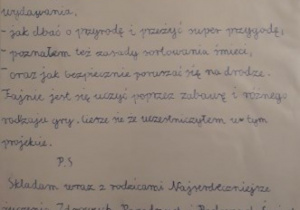 wydawania,
- jak dbać o przyrodę i przeżyć super przygodę,
- poznałem też zasady sortowania śmieci,
, oraz jak bezpiecznie poruszać się na drodze.
Fajnie jest się uczyć poprzez zabawę i różnego
rodzaju gry. Ciesze się że uczestniczyłem w tym
projekcie.
P.S
Składam wraz z rodzicami Najserdeczniejsze